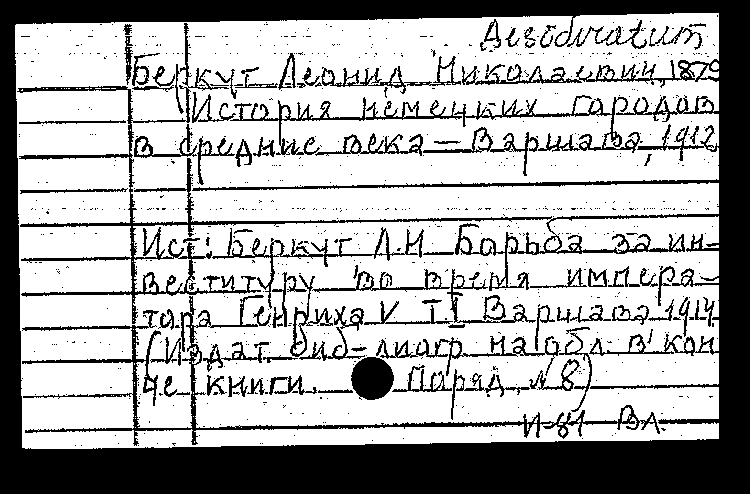 Desideratum
Беркут Леонид Николаевич, 1879
История немецких городов
в средние века — Варшава, 1912
Ист: Беркут Л.Н Борьба за ин-
веституру во время импера-
тора Генриха V Т.I Варшава 1914
(Издат. биб-лиогр на обл. в кон
це книги. Поряд. №8)
И-81 Вл.